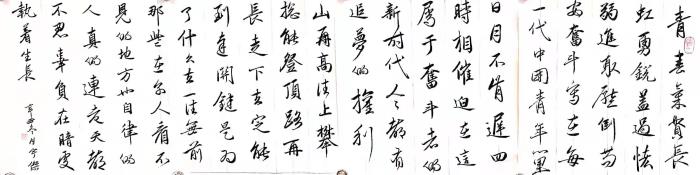 青春氣貫長
虹勇銳蓋過怯
弱進取壓倒苟
安奮斗寫在每
一代中国青年
日月不肯遲四
時相催迫在這
属于奮斗者的
新时代人人都有
追夢的權利
山再高往上攀
總能登頂路再
長走下去定能
到達關鍵是为
了什么去一往無前
那些在人看不
見的地方也自律的
人真的連夜天都
不忍辜負在暗處
執着生長
辛丑冬月